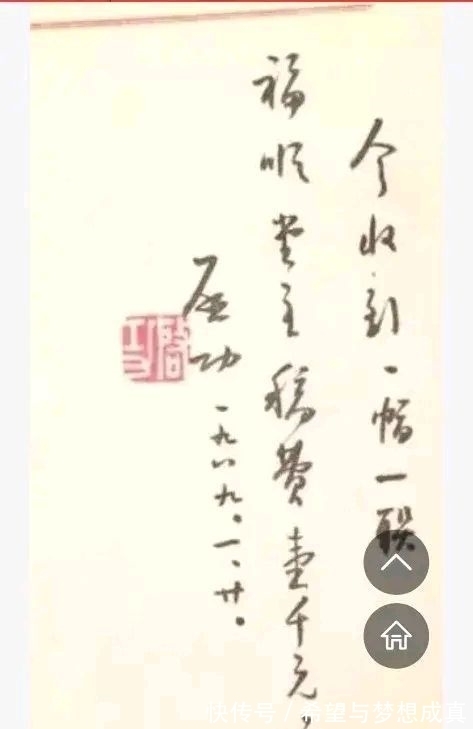 今收到一幅一联
福顺堂主稿费壹千元，
启功
一九八九。一、廿。
啓功
快传号 / 希望与梦想成真